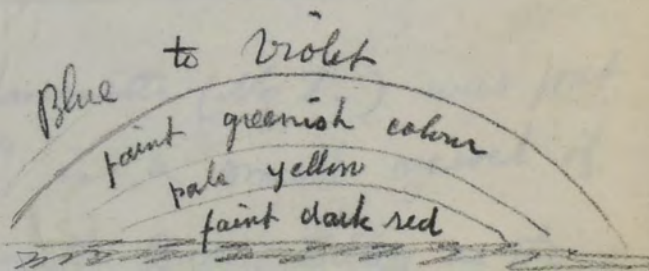 Blue to Violet
faint greenish colour
pale yellow
faint dark red